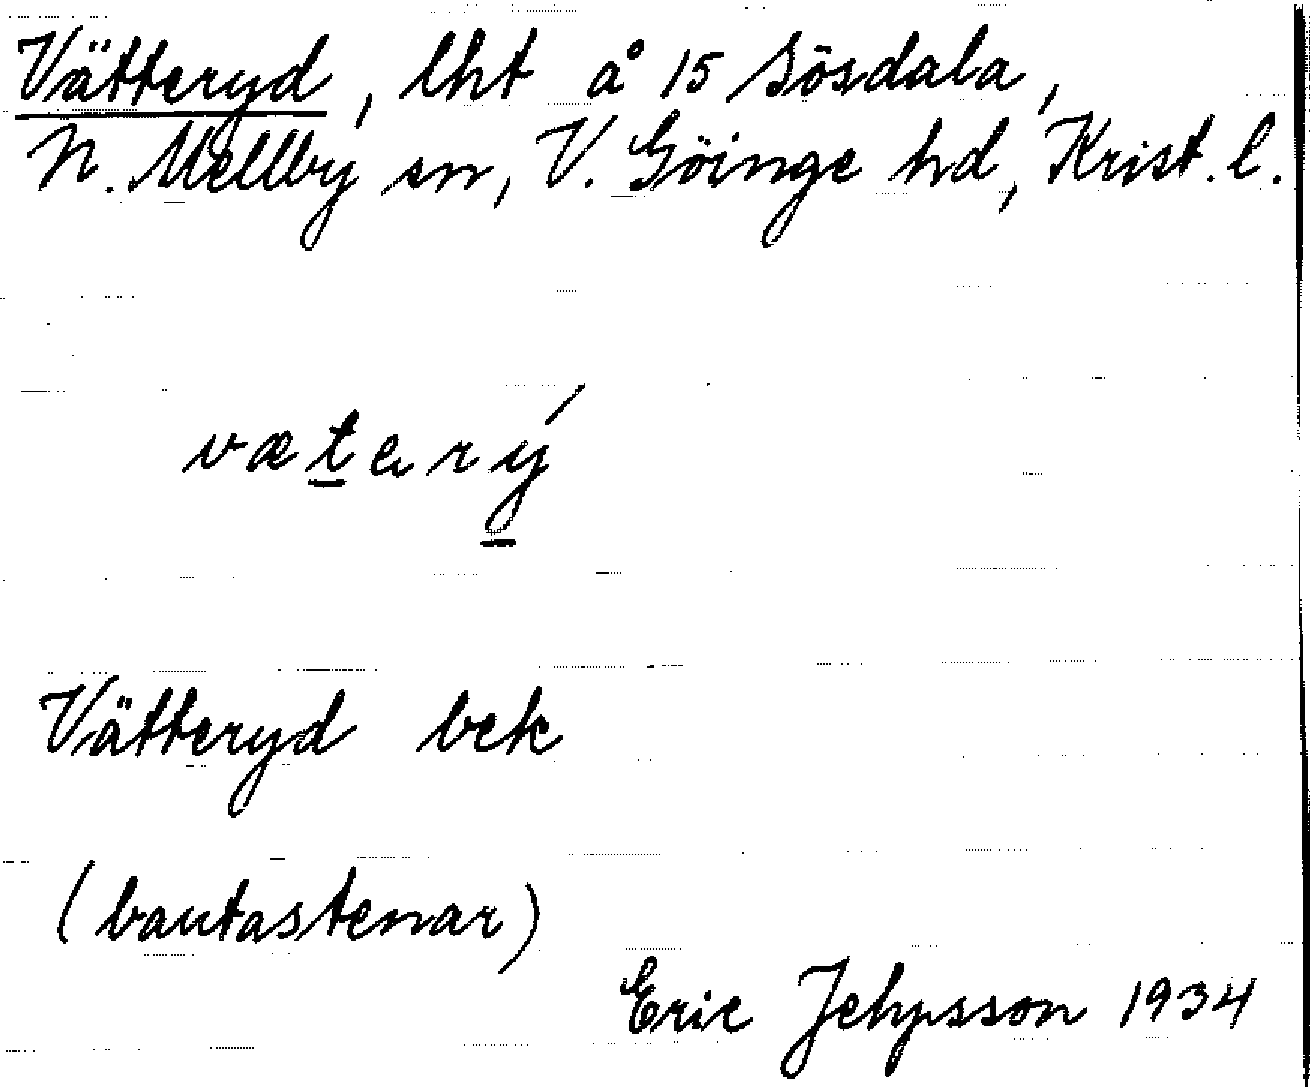 Vätteryd, lht å 15 Sösdala,
N. Mellby sn, V. Göinge hd, Krist. l.
vætarý
Vätteryd bek
(bautastenar)
Eric Jehpsson 1934